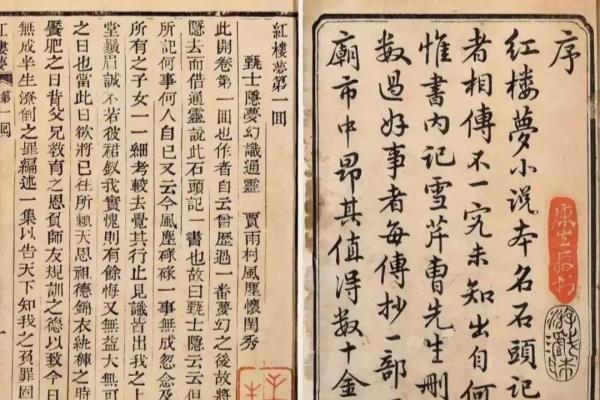 序
紅楼夢小說本名石頭記
者相傳不一究未知出自何
惟書內記雪芹曹先生刪
数過好事者每傳抄一部
廟市中昂其值得数十金
紅樓夢第一回
甄士隱夢幻識通靈 賈雨村風塵懷閨秀
此開卷第一回也作者自云曾歷過一番夢幻之後故將
隱去而借通靈說此石頭記一書也故曰甄士隱云云但
所記何事何人自己又云今風塵碌碌一事無成忽念及
所有之子女一一細考較去覺其行止見識皆出我之上
堂鬚眉誠不若彼裙釵我實愧則有餘悔又無益大無可
之日也當此日欲將已往所賴天恩祖德錦衣紈袴之時
饜肥之日背父兄教育之恩負師友規訓之德以致今日
無成半生潦倒之罪編述一集以告天下知我之負罪固
紅樓夢 第一回